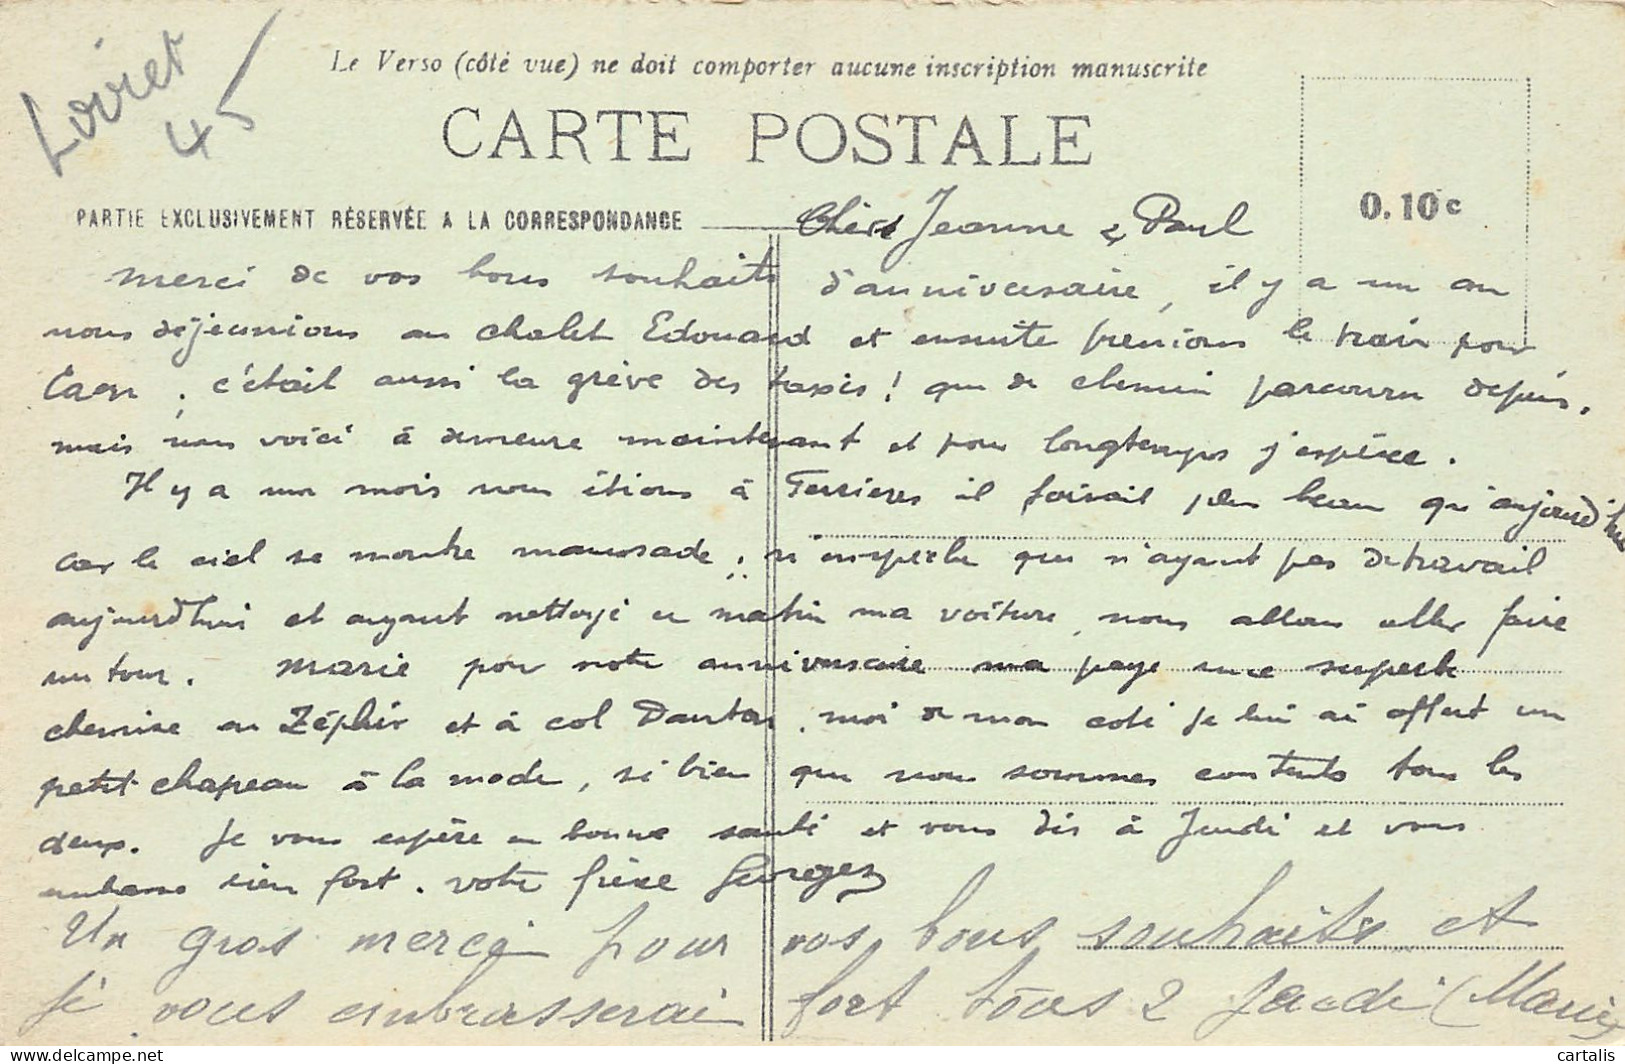 Loiret
45
Le Verso (côté vue) ne doit comporter aucune inscription manuscrite
CARTE POSTALE
0.10 c
PARTIE EXCLUSIVEMENT RÉSERVÉE A LA CORRESPONDANCE
Chers Jeanne & Paul
merci de vos bons souhaits d'anniversaire, il y a un an
nous déjeunions au chalet Edouard et ensuite prenions le train pour
Caen ; c'était aussi la grève des taxis ! que de chemin parcouru depuis,
mais nous voici à demeure maintenant et pour longtemps j'espère.
Il y a un mois nous étions à Ferrieres il faisait plus beau qu'aujourd'hui
car le ciel se montre maussade ; n'empeche que n'ayant pas de travail
aujourd'hui et ayant nettoyé ce matin ma voiture, nous allons aller faire
un tour. Marie pour notre anniversaire ma paye une superbe
chemise en Zéphir et à col Danton, moi de mon coté je lui ai offert un
petit chapeau à la mode, si bien que nous sommes contents tous les
deux. Je vous espère en bonne santé et vous dis à Jeudi et vous
embrasse bien fort. votre frère Georges
Un gros merci pour vos bons souhaits et
je vous embrasserai fort tous 2 Jeudi (Marie)
cartalis